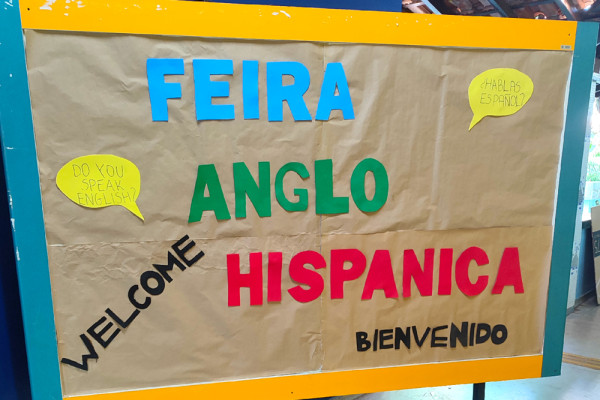 FEIRA
¿HABLAS
ESPAÑOL?
DO YOU
SPEAK
ENGLISH?
ANGLO
HISPANICA
WELCOME
BIENVENIDO